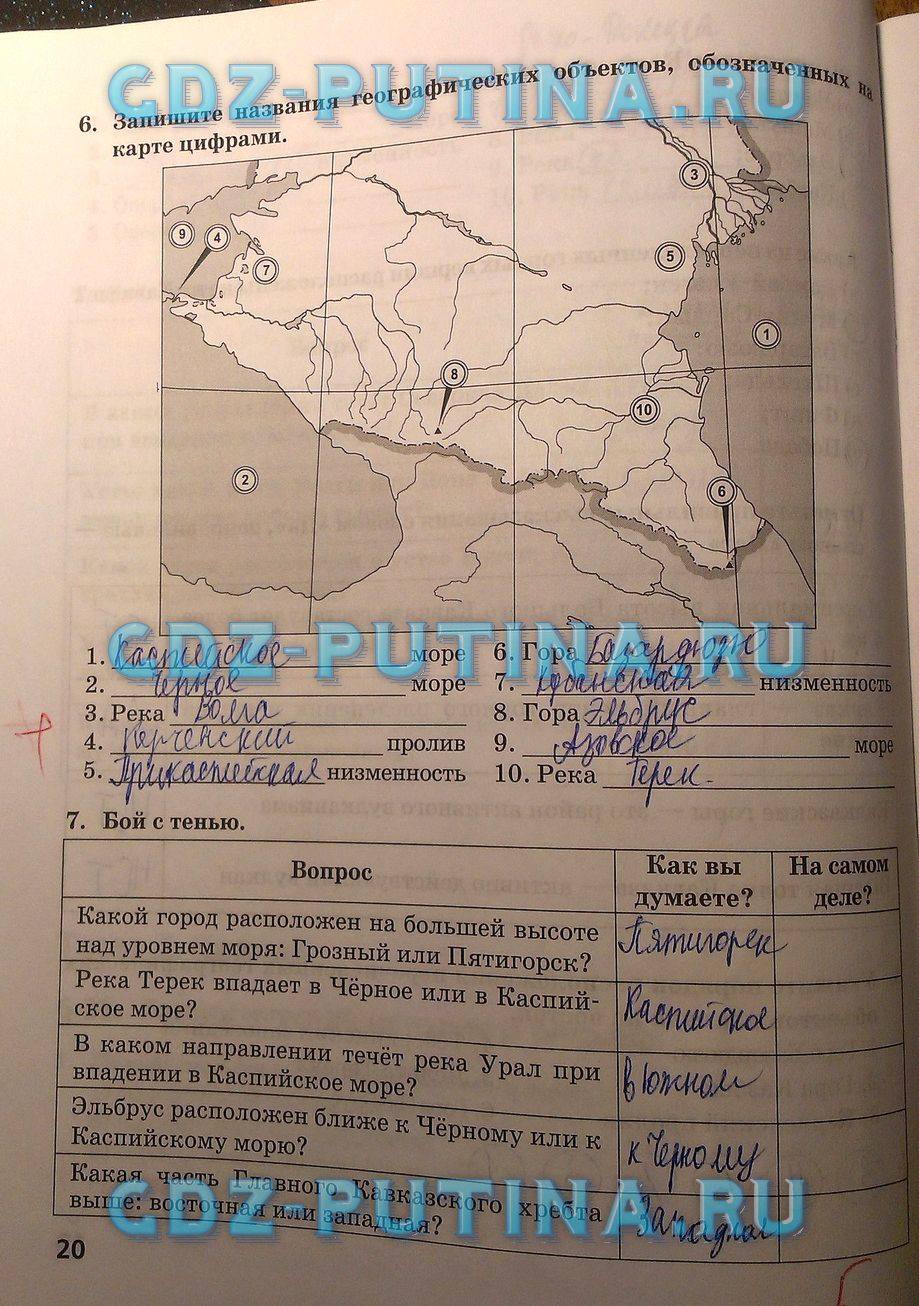 GDZ-PUTINA.RU
6. Запишите названия географических объектов, обозначенных на
карте цифрами.
3
9 4
7
5
1
8
10
2
6
GDZ-PUTINA.RU
1. Каспийское море
2. Черное море
3. Река Волга
4. Керченский пролив
5. Прикаспийская низменность
6. Гора Базардюзю
7. Кубанская низменность
8. Гора Эльбрус
9. Азовское море
10. Река Терек.
7. Бой с тенью.
Вопрос
Как вы
думаете?
На самом
деле?
Какой город расположен на большей высоте
над уровнем моря: Грозный или Пятигорск?
Пятигорск
Река Терек впадает в Чёрное или в Каспий-
ское море?
Каспийское
В каком направлении течёт река Урал при
впадении в Каспийское море?
в южном
Эльбрус расположен ближе к Чёрному или к
Каспийскому морю?
к Черному
Какая часть Главного Кавказского хребта
выше: восточная или западная?
Западная
GDZ-PUTINA.RU
20